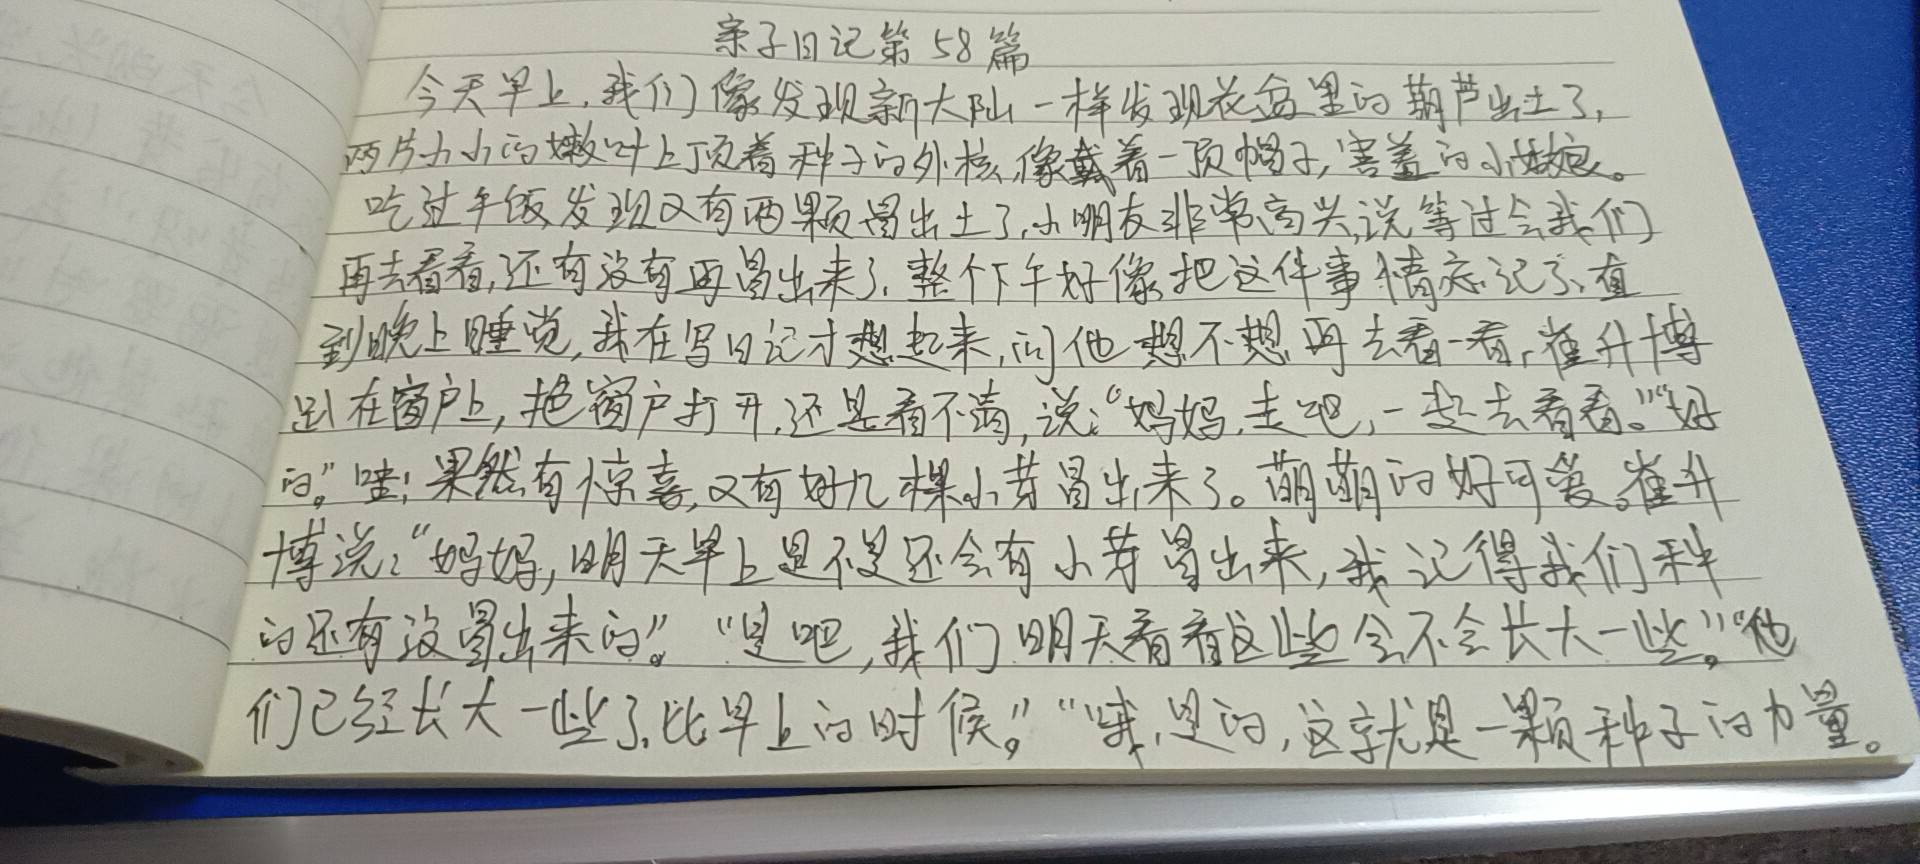 亲子日记第58篇
今天早上,我们像发现新大陆一样发现花盆里的葫芦出土了,
两片小小的嫩叶上顶着种子的外核,像戴着一顶帽子,害羞的小姑娘。
吃过午饭发现又有两颗冒出土了,小朋友非常高兴,说等过会我们
再去看看,还有没有再冒出来了,整个下午好像把这件事情忘记了,直
到晚上睡觉,我在写日记才想起来,问他想不想再去看一看,崔升博
趴在窗户上,把窗户打开,还是看不清,说:“妈妈,走吧,一起去看看。”“好
的。”哇!果然有惊喜,又有好几棵小芽冒出来了。萌萌的好可爱。崔升
博说:“妈妈,明天早上是不是还会有小芽冒出来,我记得我们种
的还有没冒出来的。”“是吧,我们明天看看这些会不会长大一些。”“他
们已经长大一些了,比早上的时候。”“哦,是的,这就是一颗种子的力量。